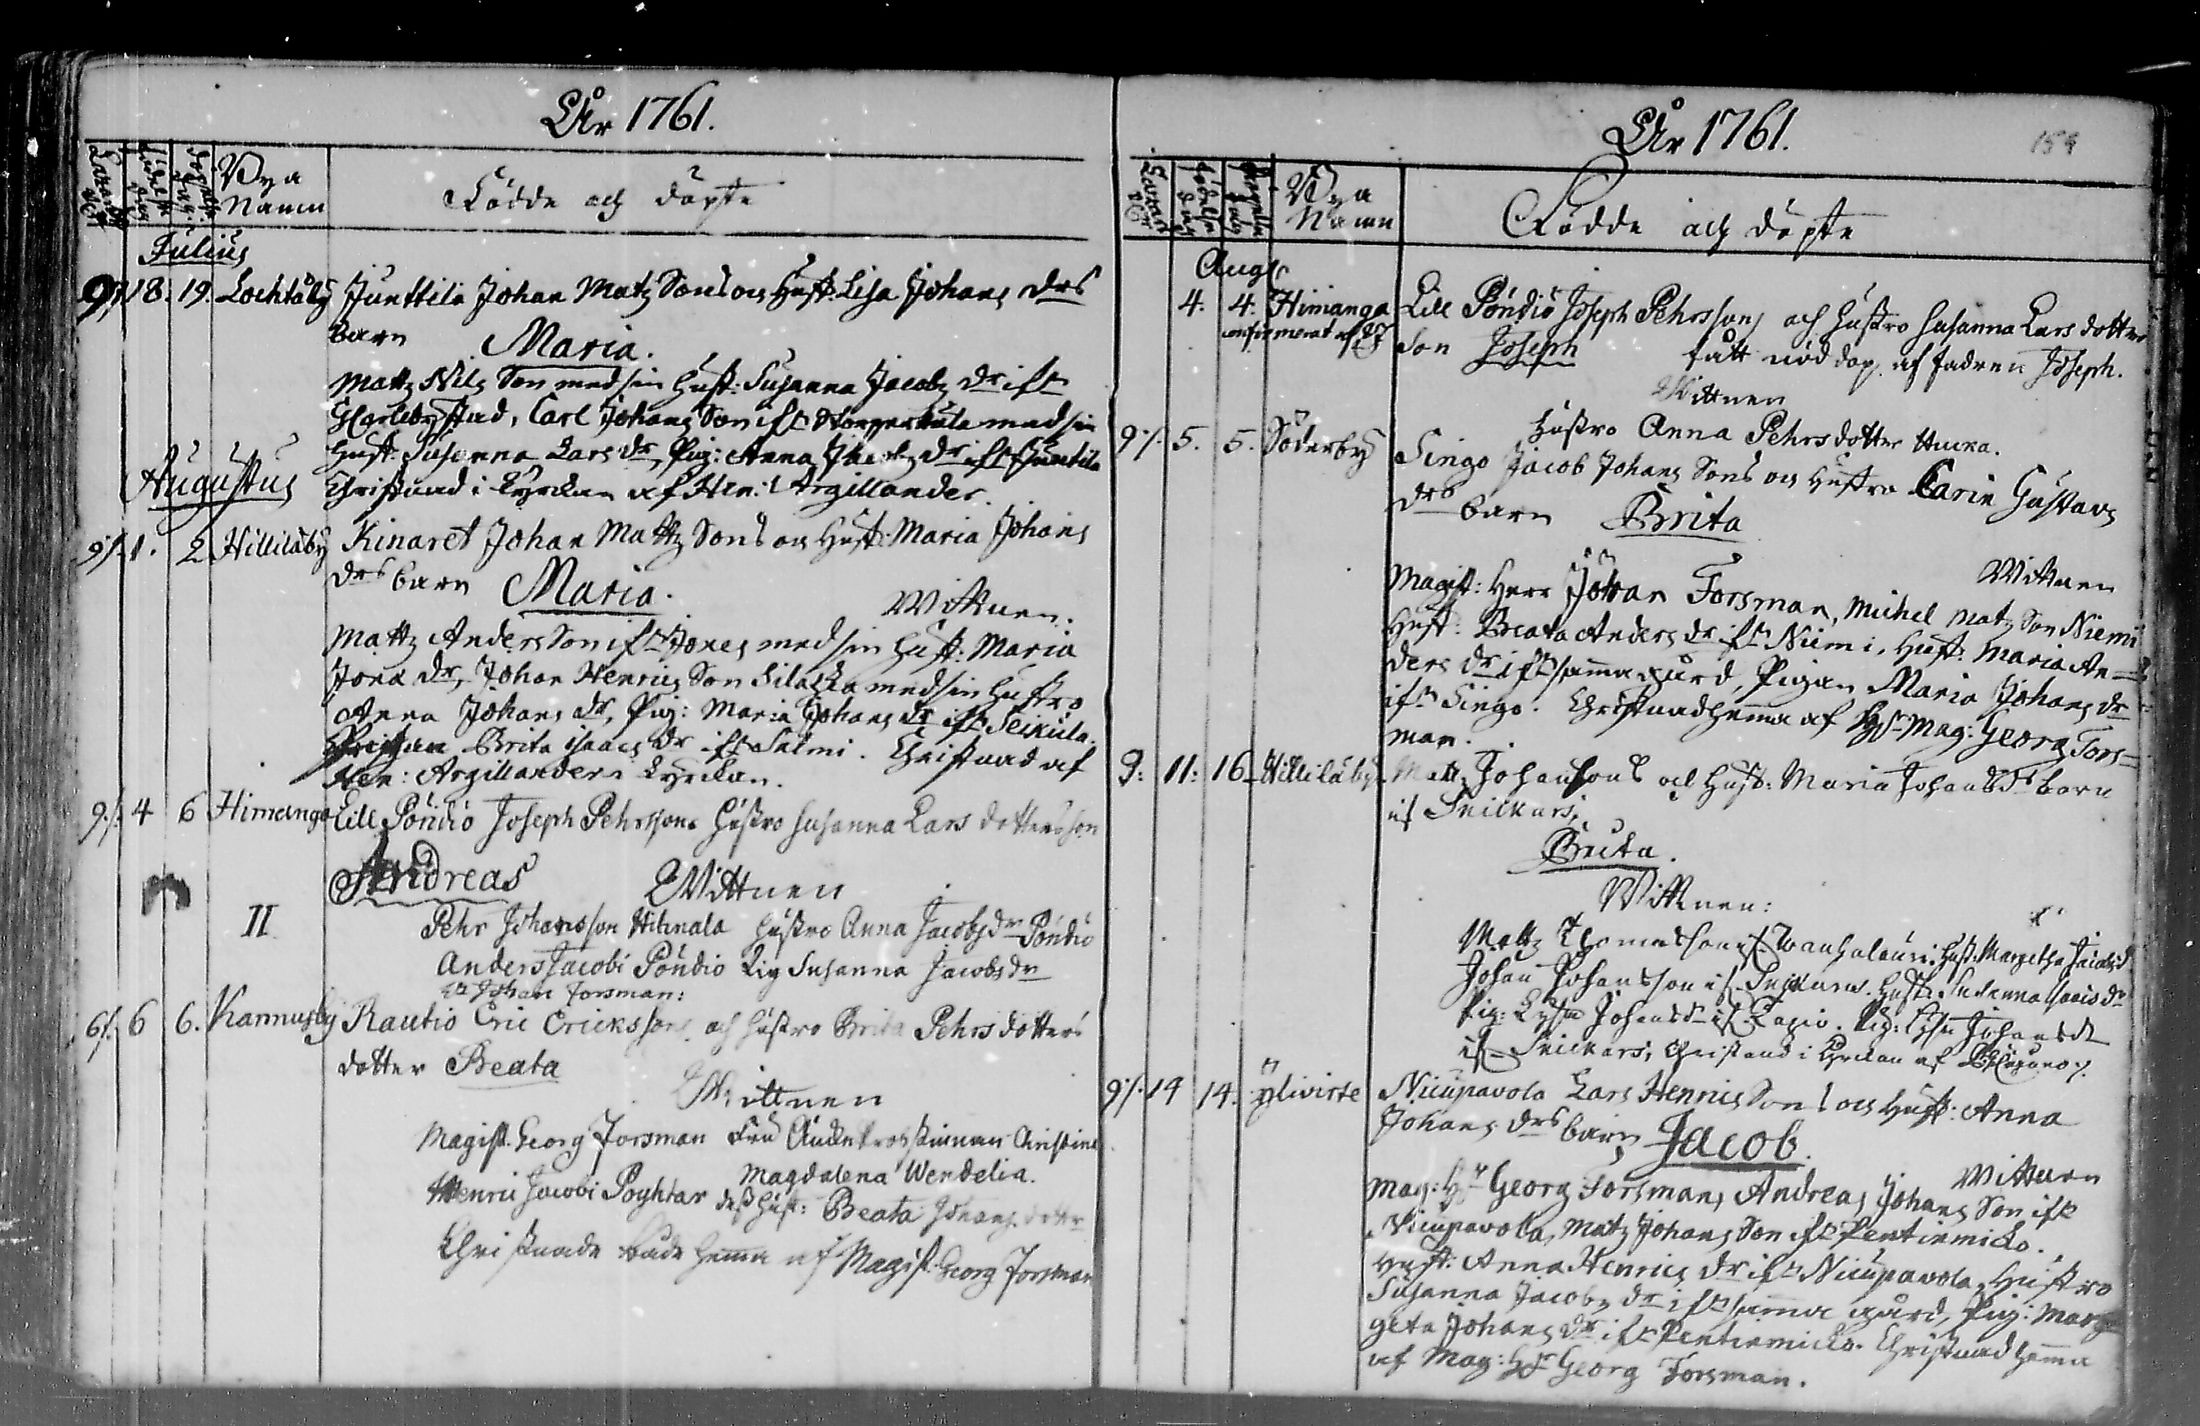 År 1761.
Bya
Namn
Födde och döpte
Julius
9/. 18. 19. Lochtåby Junttila Johan Matz Sons och Hust: Lisa Johans drs
barn Maria.
Mattz Nils Son med sin Hust: Susanna Jacobs dr ifn
G:Carleby stad, Carl Johans Son ifn med sin
Hust: Susanna Lars dr, Pig: Anna Jacobs dr ifn Juntila
Christnad i Kyrckan af Hen: Argillander.
Augustus
9/. 1. 2. Hilliläby Kinaret Johan Mattz Sons och Hust: Maria Johans
drs barn Maria.
Wittnen.
Mattz Anders Son ifn med sin Hust: Maria
Jona dr, Johan Henrics Son med sin Hustro
Anna Johans dr, Pig: Maria Johans dr ifn Seikula.
Brita Isaacs dr ifn Salmi. Christnad af
Hen: Argillander i Kyrckan.
9/. 4 6 Himango Lill Pöndiö Joseph Pehrssons Hustro Susanna Lars dotters son
Andreas Wittnen
II
Pehr Johansson Hihnala Hustro Anna Jacobs dr Pöndiö
Anders Jacobi Pöndiö Pig Susanna Jacobs dr
Johan Forsman:
6/. 6 6. Kannusby Rautio Eric Ericks sons och Hustro Brita Pehrs dotters
dotter Beata
Wittnen
Magist. Georg Forsman Fru Christina
Magdalena Wendelia.
Henric Jacobi Poyhtar dess Hust: Beata Johans dotter
Christnade både hemma af Magist. Georg Forsman
År 1761.
159
Bya
Namn
Födde och döpte
Aug:
4. 4. Himanga Lill Pöndiö Joseph Pehrssons och Hustro Susanna Lars dotters
confirmerat af
son Joseph fått nöddop af fadren Joseph.
Wittnen
Hustro Anna Pehrsdotter
9/. 5. 5. Söderby Singo Jacob Johans Sons och Hustro Carin Gustavs
drs barn Brita
Wittnen
Magist: Herr Johan Forsman, Michel Matz Son Niemi
Hust: Beata Anders dr ifn Niemi, Hust: Maria An-
ders dr ifn samma gård, Pigan Maria Johans dr
ifn Singo. Christnad hemma af Hr Mag: Georg Fors-
man.
9: 11: 16 Hilliläby Matz Johanssons och Hust: Maria Johansdrs barn
if Snickars,
Brita.
Wittnen:
Mattz Thomasson if Hust: Margetha Jacobsd
Johan Johansson if Snickars. Hust: dr
Pig: Johansdr if Pig: Lisa Johansdr
if Snickars, Christnad i Kyrckan af
9/. 14 14. Ylivirre Nicupavola Lars Henrics Sons och Hust: Anna
Johans drs barn Jacob.
Wittnen
Mag: Hr Georg Forsman, Andreas Johans Son ifn
Nicupavola, Matz Johans Son ifn Pentinmicko.
Hust: Anna Henrics dr ifn Nicupavola, Hustro
Susanna Jacobs dr ifn samma gård, Pig: Marg
geta Johans dr ifn Pentinmicko. Christnad hemma
af Mag: Hr Georg Forsman.